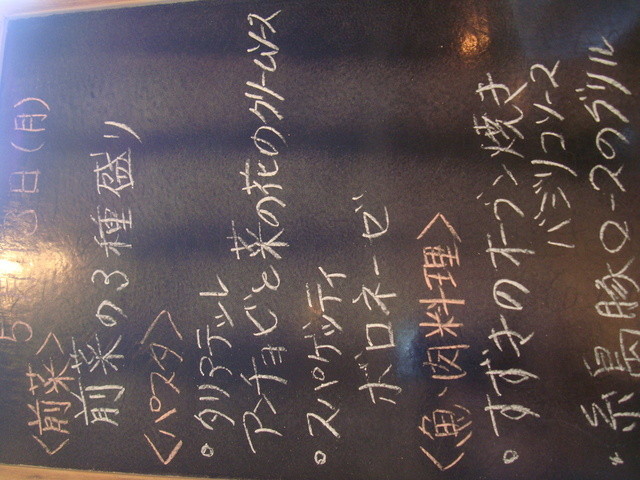 日(月)
<前菜>
前菜の3種盛り
<パスタ>
・タリアテッレ
アンチョビと菜の花のクリームソース
・スパゲッティ
ボロネーゼ
<魚・肉料理>
・すずきのオーブン焼き
バジリコソース
・糸島豚ロースのグリル